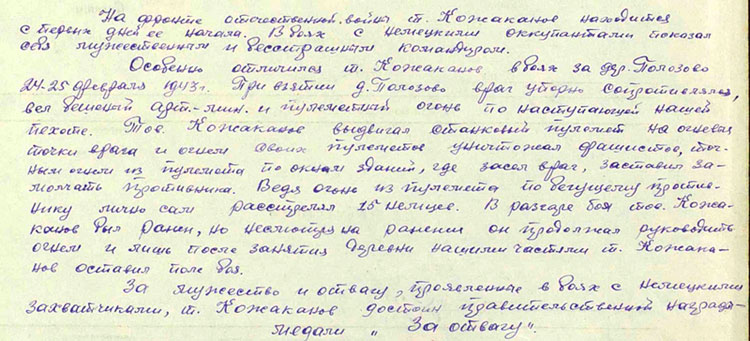 На фронте отечественной войны т. Кожаканов находится
с первых дней ее начала. В боях с немецкими оккупантами показал
себя мужественным и бесстрашным командиром.
Особенно отличился т. Кожаканов в боях за дер. Полозово
24-25 февраля 1943 г. При взятии д. Полозово враг упорно сопротивлялся,
вел бешеный арт.-мин. и пулеметный огонь по наступающей нашей
пехоте. Тов. Кожаканов выдвигал станковый пулемет на огневые
точки врага и огнем своих пулеметов уничтожал фашистов, точ-
ным огнем из пулемета по окнам зданий, где засел враг, заставил за-
молчать противника. Ведя огонь из пулемета по бегущему против-
нику лично сам расстрелял 15 немцев. В разгаре боя тов. Кожа-
канов был ранен, но несмотря на ранение он продолжал руководить
огнем и лишь после занятия деревни нашими частями т. Кожака-
нов оставил поле боя.
За мужество и отвагу, проявленные в боях с немецкими
захватчиками, т. Кожаканов достоин правительственной награды
медали „За отвагу".